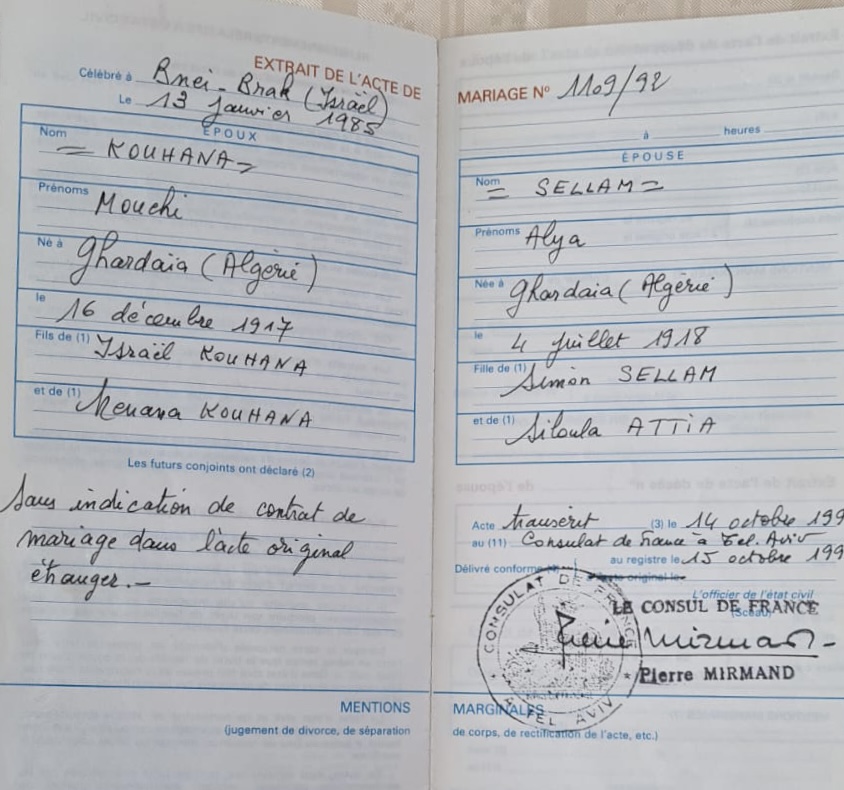 EXTRAIT DE L'ACTE DE
Célébré à Bnei-Brak (Israël)
Le 13 janvier 1985
ÉPOUX
Nom
= KOUHANA =
Prénoms
Mouchi
Né à
Ghardaïa (Algérie)
le
16 décembre 1917
Fils de (1) Israël KOUHANA
et de (1) KOUHANA
Les futurs conjoints ont déclaré (2)
Sans indication de contrat de
mariage dans l'acte original
étranger.-
MENTIONS
(jugement de divorce, de séparation
MARIAGE N° 1109/92
à heures
ÉPOUSE
Nom
= SELLAM =
Prénoms
Alya
Née à
Ghardaia (Algérie)
le
4 juillet 1918
Fille de (1)
Simon SELLAM
et de (1)
Siloula ATTIA
Acte transcrit (3) le 14 octobre 199
au (11) Consulat de France à Tel.Aviv
au registre le 15 octobre 199
Délivré conforme
L'officier de l'état civil
(Sceau)
LE CONSUL DE FRANCE
Pierre MIRMAND
CONSULAT DE FRANCE
A TEL AVIV
MARGINALES
de corps, de rectification de l'acte, etc.)